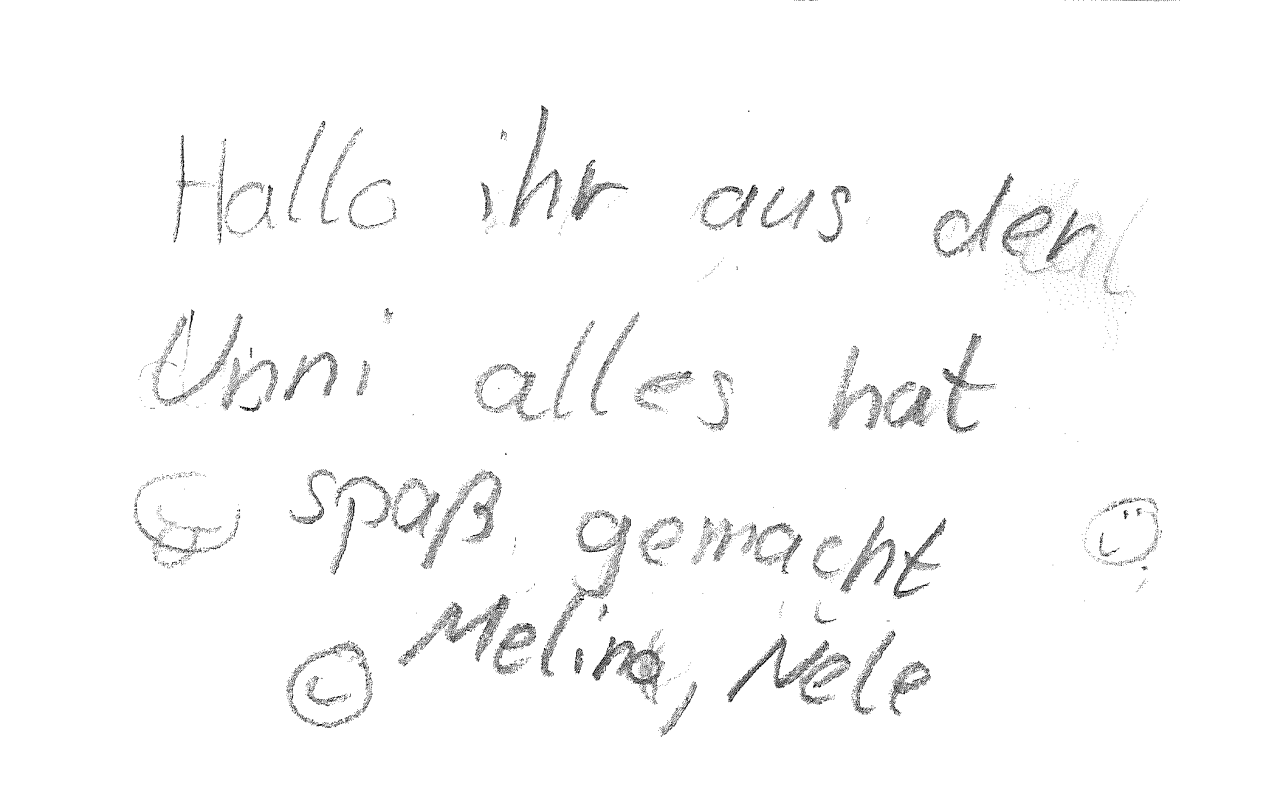 Hallo ihr aus der
Unni alles hat
spaß gemacht
Melina, Nele